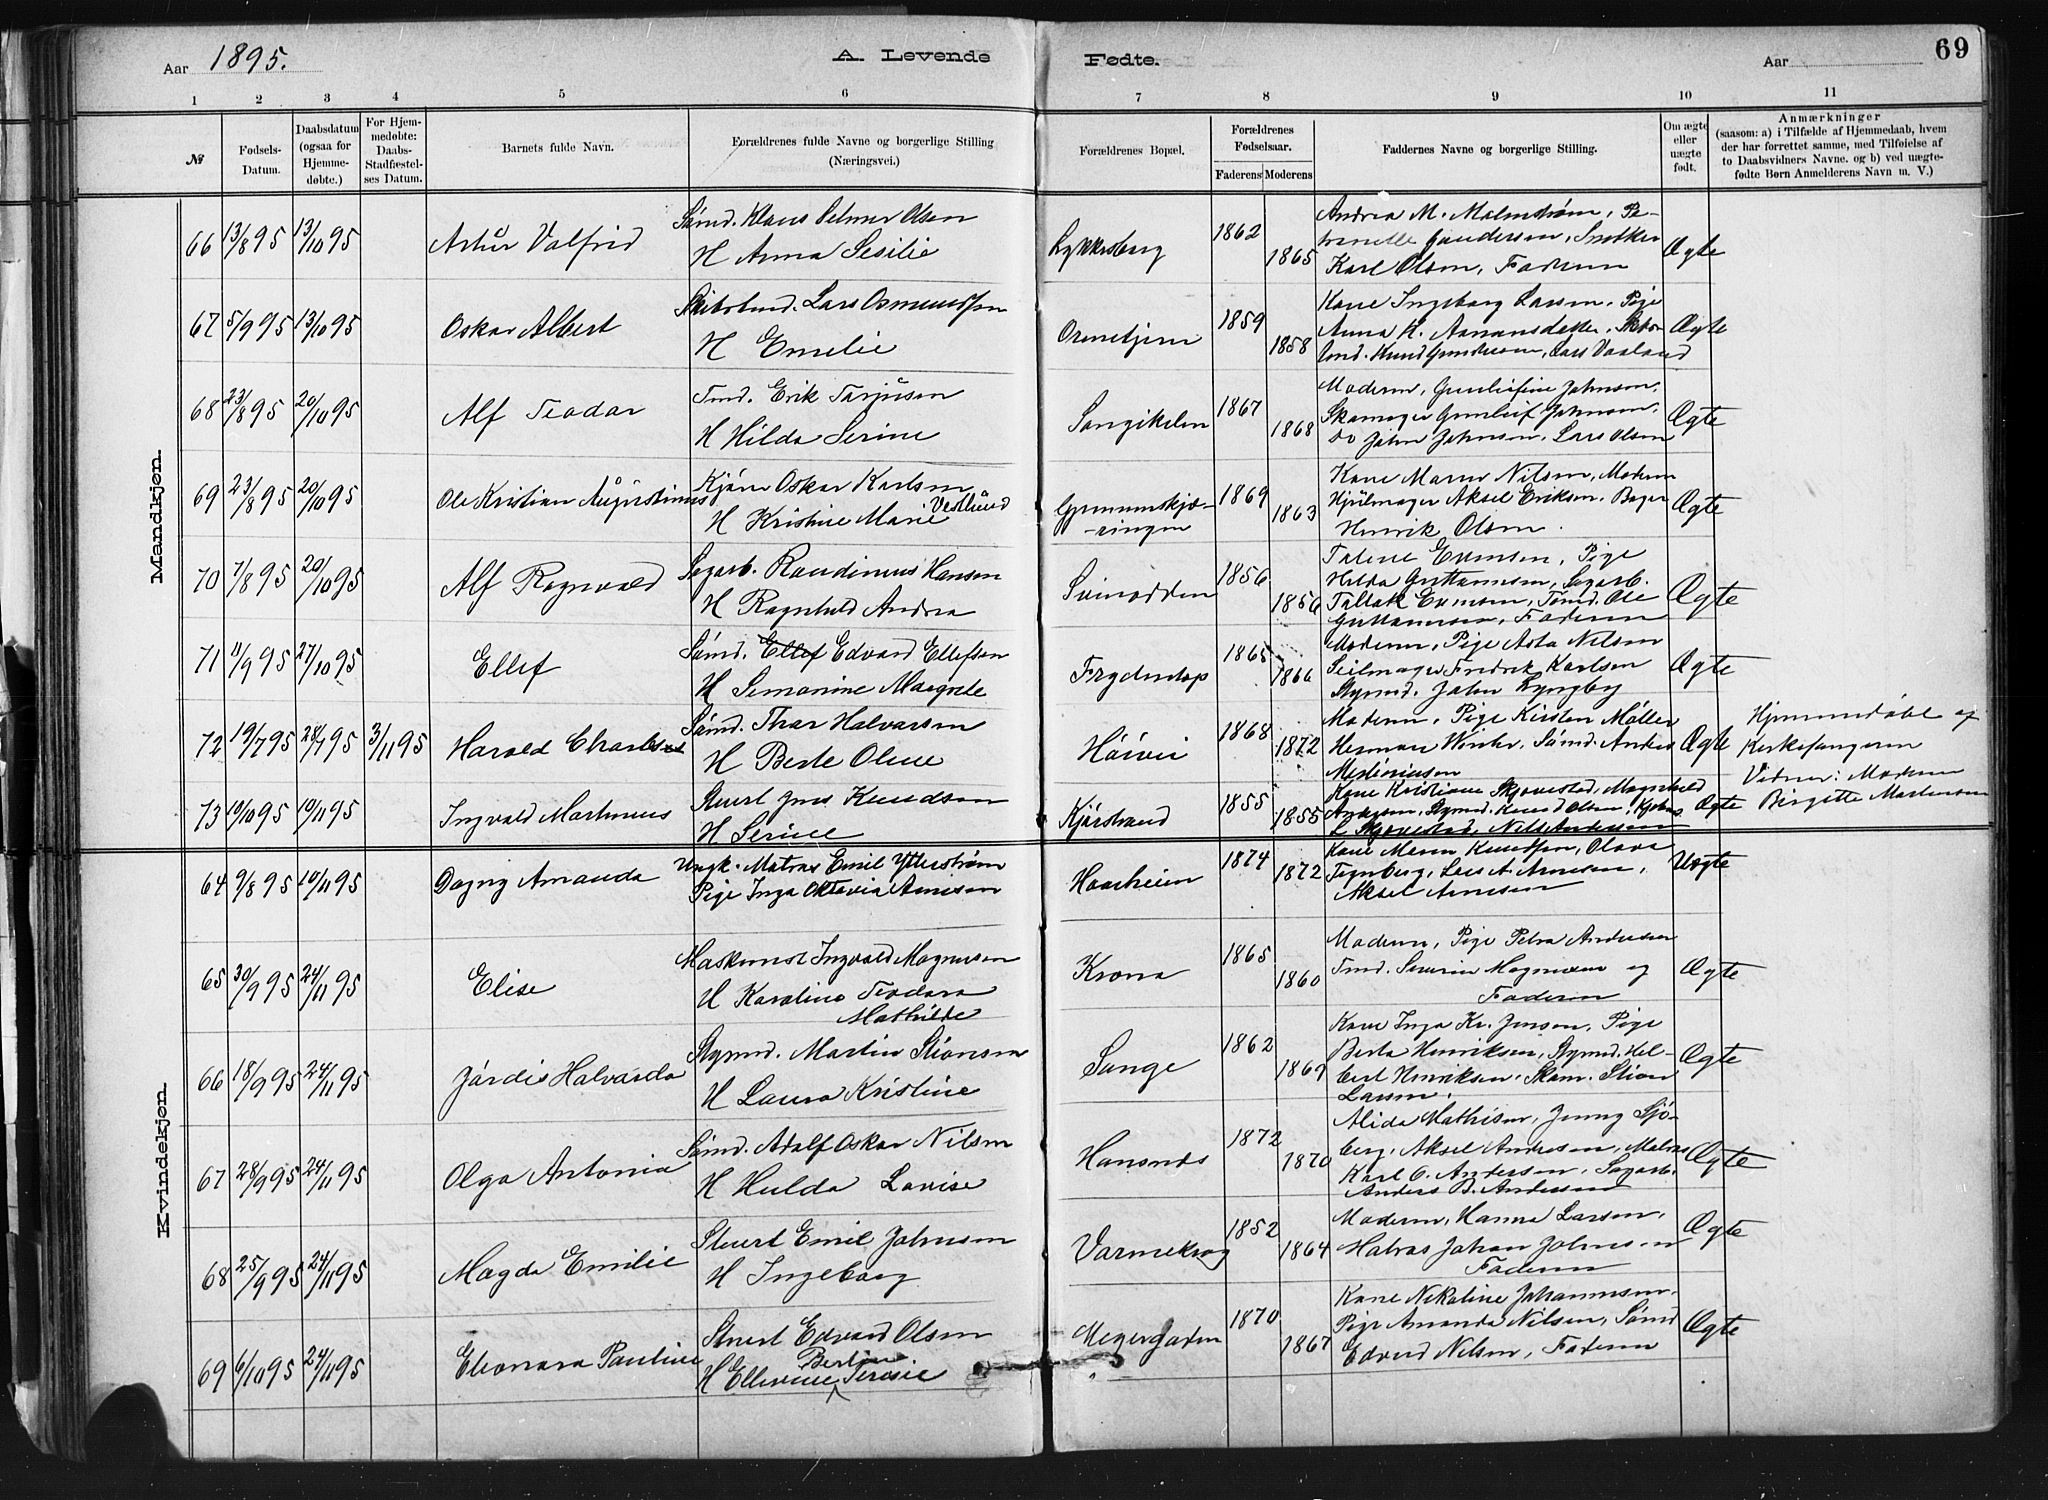 Aar 1895.
A. Levende Fødte.
Aar
69
1 2 3 4 5 6 7 8 9 10 11
№
Fødsels-Datum.
Daabsdatum (ogsaa for Hjemmedøbte.)
For Hjemmedøbte: Daabs-Stadfæstelses Datum.
Barnets fulde Navn.
Forældrenes fulde Navne og borgerlige Stilling (Næringsvei.)
Forældrenes Bopæl.
Forældrenes Fødselsaar.
Faderens Moderens
Faddernes Navne og borgerlige Stilling.
Om ægte eller uægte født.
Anmærkninger
(saasom: a) i Tilfælde af Hjemmedaab, hvem der har forrettet samme, med Tilføielse af to Daabsvidners Navne. og b) ved uægtefødte Børn Anmelderens Navn m. V.)
Mandkjøn.
66 13/8 95 13/10 95 Artur Valfrid
Sømd. Klaus Selmer Olsen
H Anna Sesilie
Lykkesberg 1862 1865
Andrea M. Malmstrøm, Pe-
tranelle Gundersen, Snekker
Karl Olsen, Faderen
Ægte
67 5/9 95 13/10 95 Oskar Albert
Skibstmd. Lars Osmundsen
H Emelie
Ormetjern 1859 1858
Kone Ingeborg Larsen, Pige
Anna H. Aanansdatter, Skibs
tmd. Knud Gundersen, Lars Vaaland
Ægte
68 23/8 95 20/10 95 Alf Teodor
Tmd. Erik Tarjusen
H Hilda Serine
Songikelen 1867 1868
Moderen, Gunliefine Johnsen,
Skomager Gunleif Johnsen,
do John Johnsen, Lars Olsen
Ægte
69 23/8 95 20/10 95 Ole Kristian Augustinus
Kjører Oskar Karlsen Vestlund
H Kristine Marie
Grummskjæ-
ringen 1869 1863
Kone Maren Nilsen, Moderen
Hjulmager Aksel Eriksen, Bager
Henrik Olsen.
Ægte
70 7/8 95 20/10 95 Alf Ragnvald
Sagarb. Raudinius Hansen
H Ragnhild Andrea
Svinodden 1856 1856
Talene Evensen, Pige
Hilda Guttormsen, Sagarb.
Tallak Evensen, Tømd. Ole
Guttormsen, Faderen
Ægte
71 11/9 95 27/10 95 Ellef
Sømd. Ellef Edvard Ellefsen
H Simonine Margrete
Frydendop 1865 1866
Moderen, Pige Asta Nilsen
Seilmager Fredrik Karlsen
Styrmd. John Lyngby
Ægte
72 19/7 95 28/7 95 3/11 95 Harald Charles
Sømd. Thor Halvorsen
H Berte Oline
Høivei 1868 1872
Moderen, Pige Kirsten Møller
Herman Winter, Sømd. Anders
Mestoniusen
Ægte
Hjemmedøbt af
Kirkesangeren
Vidner: Moderen
Birgitte Mortensen
73 10/10 95 10/11 95 Ingvald Martinius
Stuert Jens Knudsen
H Serine
Kjørstrand 1855 1855
Kone Kristiane Skjovestad, Magnhild
Andersen, Styrmd. Knud Olsen, Kjøbm.
L Skjovestad, Nils Andersen
Ægte
Kvindekjøn.
64 9/8 95 10/11 95 Dagny Amanda
Ungk. Matros Emil Ytterstrøm
Pige Inga Oktavia Arnesen
Haarheien 1874 1872
Kone Maren Knudsen, Olava
Tegnberg, Lars A. Arnesen,
Aksel Arnesen
Uægte
65 30/9 95 24/11 95 Elise
Maskinist Ingvald Magnusen
H Karoline Teodora
Mathilde
Krona 1865 1860
Moderen, Pige Petra Andersen
Tmd. Severin Magnusen og
Faderen
Ægte
66 18/9 95 24/11 95 Jårdis Halvarda
Styrmd. Martin Stionsen
H Laura Kristine
Songe 1862 1869
Kone Inga Kr. Jensen, Pige
Berta Henriksen, Styrmd. Hel-
bert Henriksen, Skom. Stion
Larsen.
Ægte
67 28/9 95 24/11 95 Olga Antonia
Sømd. Adolf Oskar Nilsen
H Hulda Lovise
Hansnes 1872 1870
Alida Mathisen, Jenny Sjø-
berg, Aksel Andresen, Matros
Karl O. Andersen, Sagarb.
Anders B. Andersen
Ægte
68 25/9 95 24/11 95 Magda Emilie
Stuert Emil Johnsen
H Ingeborg
Varmekrog 1852 1864
Moderen, Hanna Larsen,
Matros Johan Johnsen
Faderen
Ægte
69 6/10 95 24/11 95 Eleonora Pauline
Stuert Edvard Olsen
Bertine
H Ellevine Teresie
Meyergaden 1870 1867
Kone Nikoline Johannesen,
Pige Amanda Nilsen, Sømd
Edvard Nilsen, Faderen
Ægte